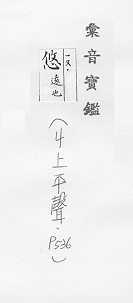 彙音寶鑑
一又·
悠遠也
(ㄐ上平聲·P536)